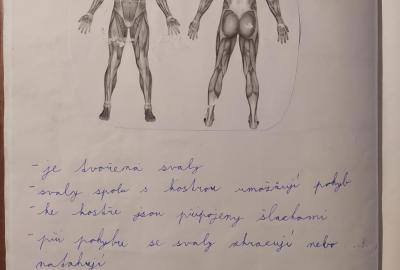 - je tvořena svaly
- svaly spolu s kostrou umožňují pohyb
- ke kostře jsou připojeny šlachami
- při pohybu se svaly zkracují nebo
natahují